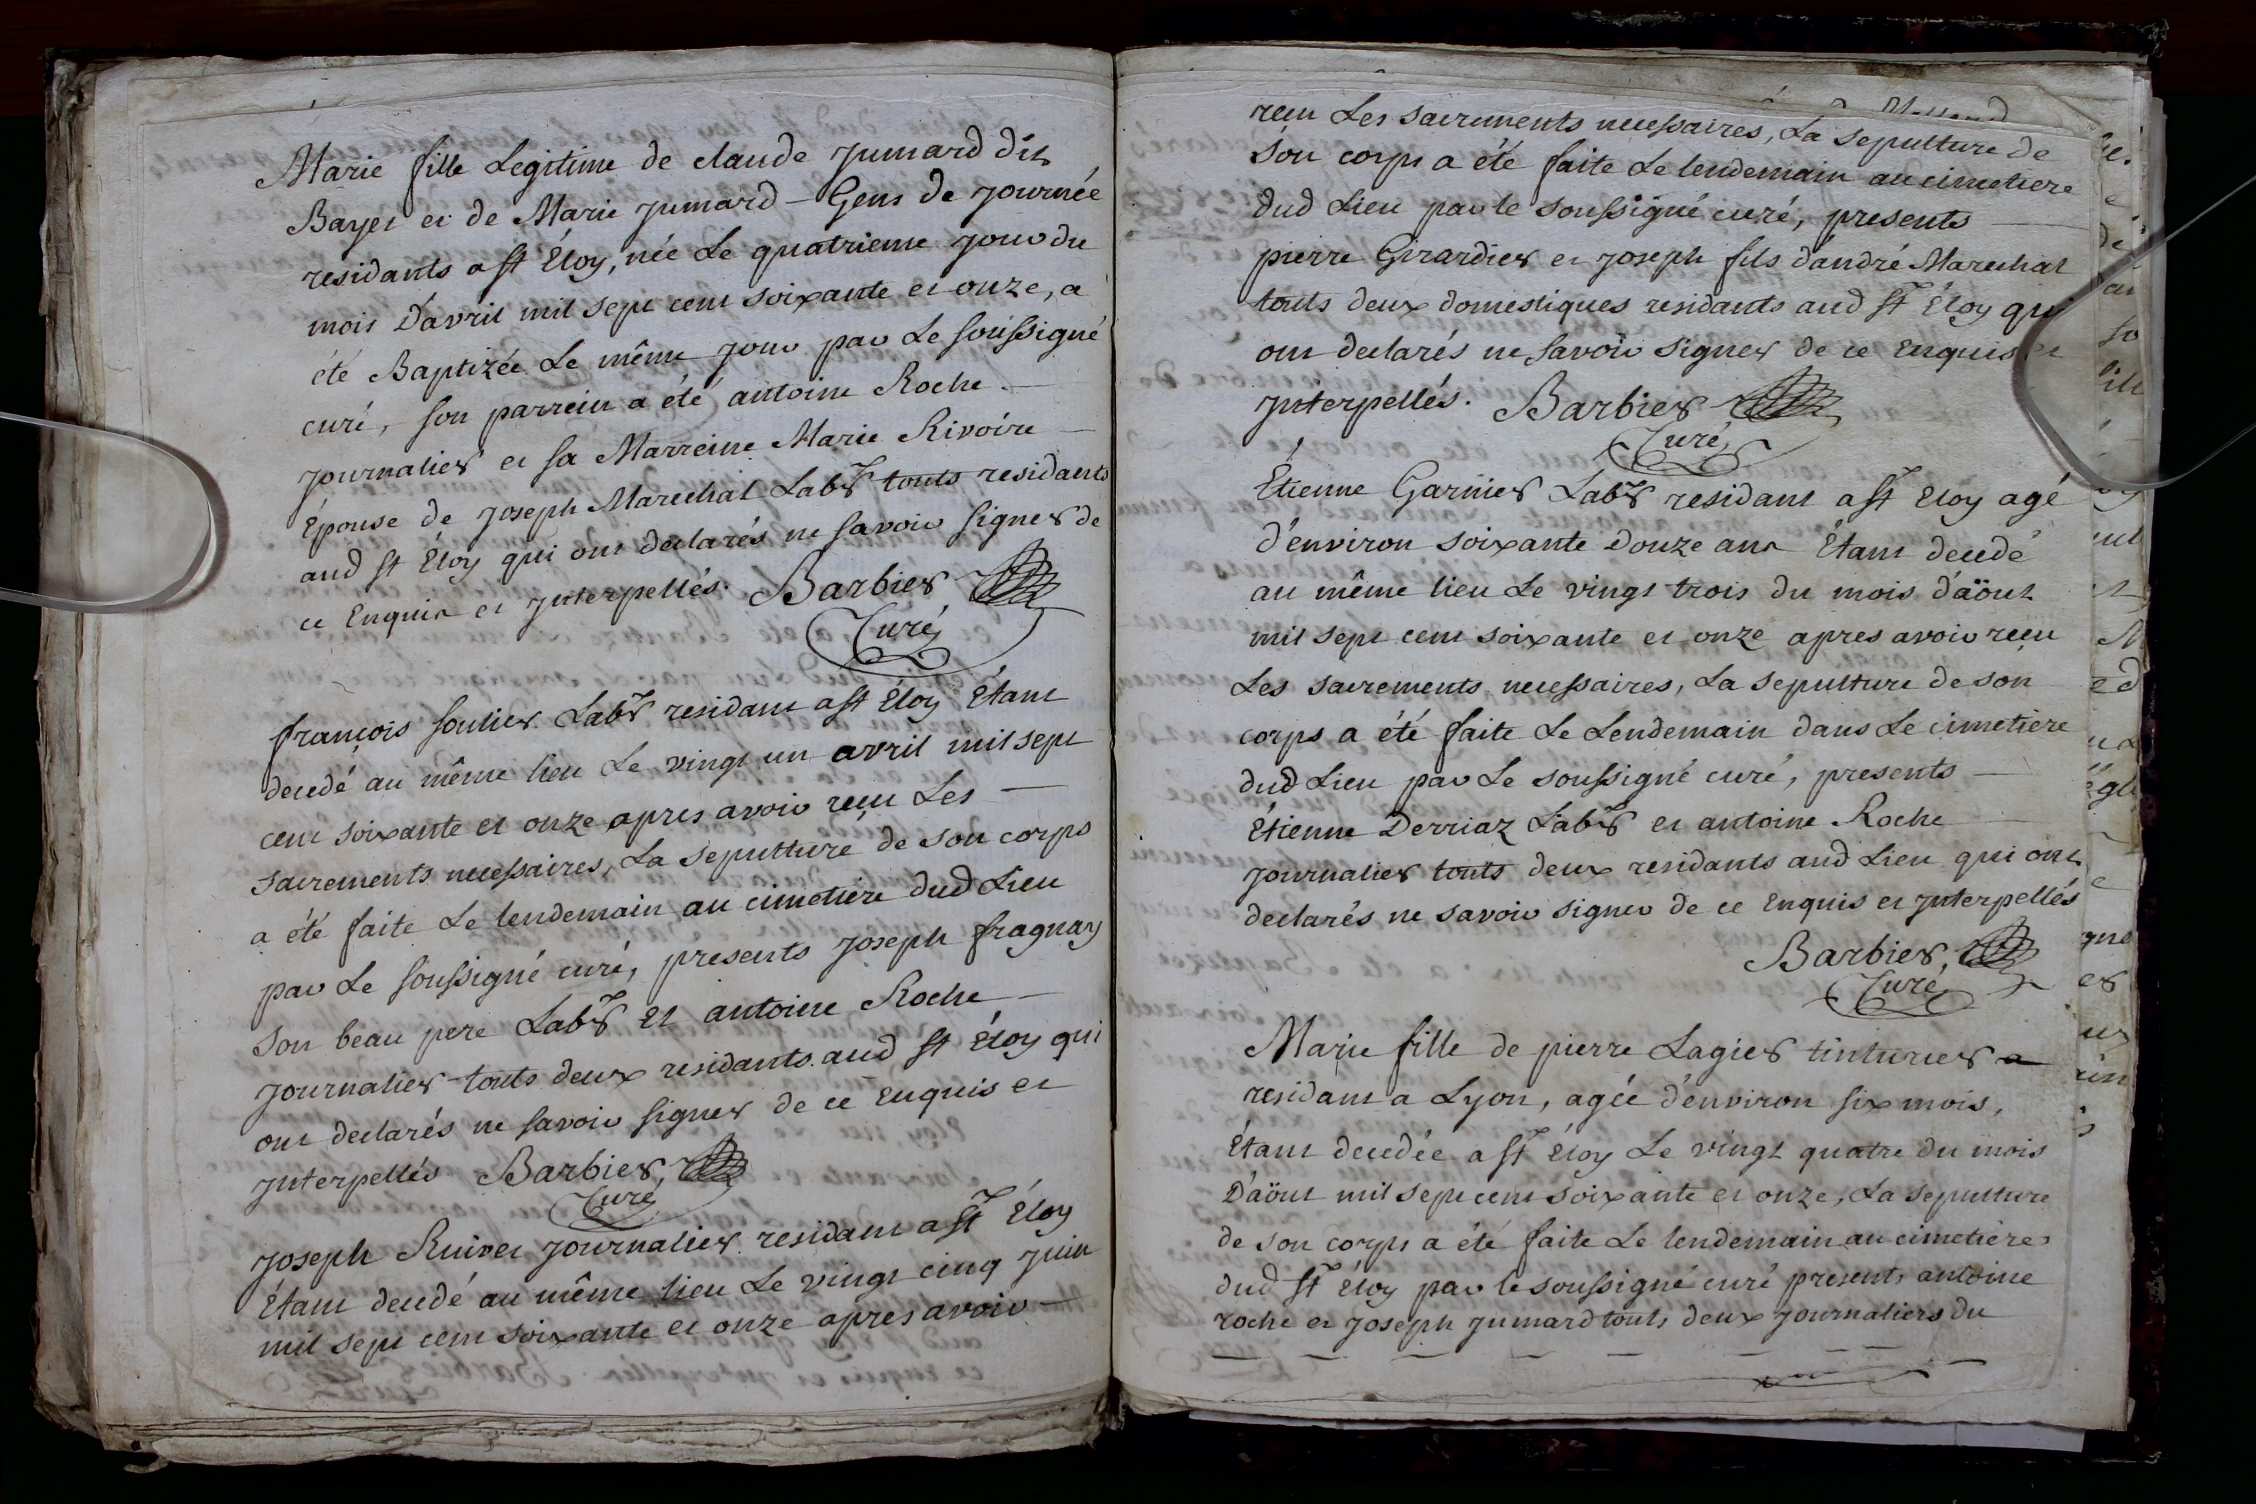 Marie fille Legitime de claude Jumard dit
Bayet et de Marie Jumard – Gens de Journée
residants a st Éloy, née Le quatrieme Jour du
mois D'avril mil sept cent soixante et onze, a
été Baptizée Le même Jour par Le soussigné
curé, son parrein a été antoine Roche —
Journalier et sa Marreine Marie Rivoire —
Épouse de Joseph Marechal Labr touts residants
aud st Éloy qui ont declarés ne savoir signer de
ce Enquis et Interpellés. Barbier
Curé
françois soulier Labr residant a st Éloy Étant
decedé au même lieu Le vingt un avril mil sept
cent soixante et onze apres avoir reçu Les —
sacrements necessaires, La sepulture de son corps
a été faite Le lendemain au cimetiere dud Lieu
par Le soussigné curé, presents Joseph fragnay
son beau pere Labr Et antoine Roche —
Journalier touts deux residants aud st Éloy qui
ont declarés ne savoir signer de ce Enquis et
Interpellés Barbier,
Curé
Joseph Ruivet Journalier residant a st Éloy
Étant decedé au même lieu Le vingt cinq Juin
mil sept cent soixante et onze apres avoir —
reçu Les sacrements necessaires, La sepulture de
son corps a été faite Le lendemain au cimetiere
dud Lieu par le soussigné curé, presents —
pierre Girardier et Joseph fils d'andré Marechal
touts deux domestiques residants aud st Éloy qui
ont declarés ne savoir signer de ce Enquis et
Interpellés. Barbier
Curé
Étienne Garnier Labr residant a st Eloy agé
d'environ soixante Douze ans Étant decedé
au même lieu Le vingt trois du mois d'aöut
mil sept cent soixante et onze apres avoir reçu
Les sacrements necessaires, La sepulture de son
corps a été faite Le Lendemain dans Le cimetiere
dud Lieu par Le soussigné curé, presents —
Étienne Derriaz Labr et antoine Roche —
Journalier touts deux residants aud Lieu qui ont
declarés ne savoir signer de ce Enquis et Interpellés
Barbier,
Curé
Marie fille de pierre Lagier tinturier a
residant a Lyon, agée d'environ six mois,
Étant decedée a st Éloy Le vingt quatre du mois
D'aöut mil sept cent soixante et onze, La sepulture
de son corps a été faite Le lendemain au cimetiere
dud st Éloy par le soussigné curé presents antoine
roche et Joseph Jumard touts deux Journaliers du